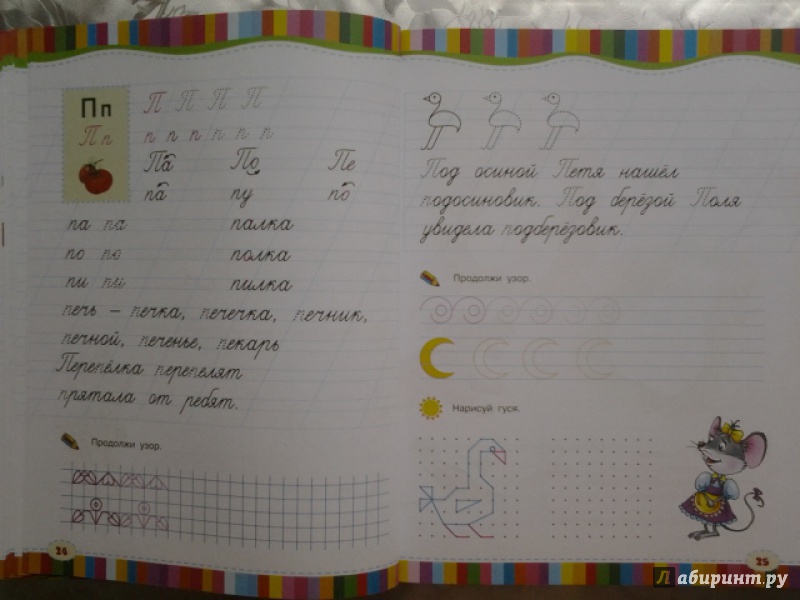 Пп П П П П
Пп п п п п п п
Па По Пе
па пу по
па па палка
по по полка
пи пи пилка
печь – печка, печечка, печник,
печной, печенье, пекарь
Перепёлка перепелят
прятала от ребят.
Продолжи узор.
24
Под осиной Петя нашёл
подосиновик. Под берёзой Поля
увидела подберёзовик.
Продолжи узор.
Нарисуй гуся.
25
Лабиринт.ру